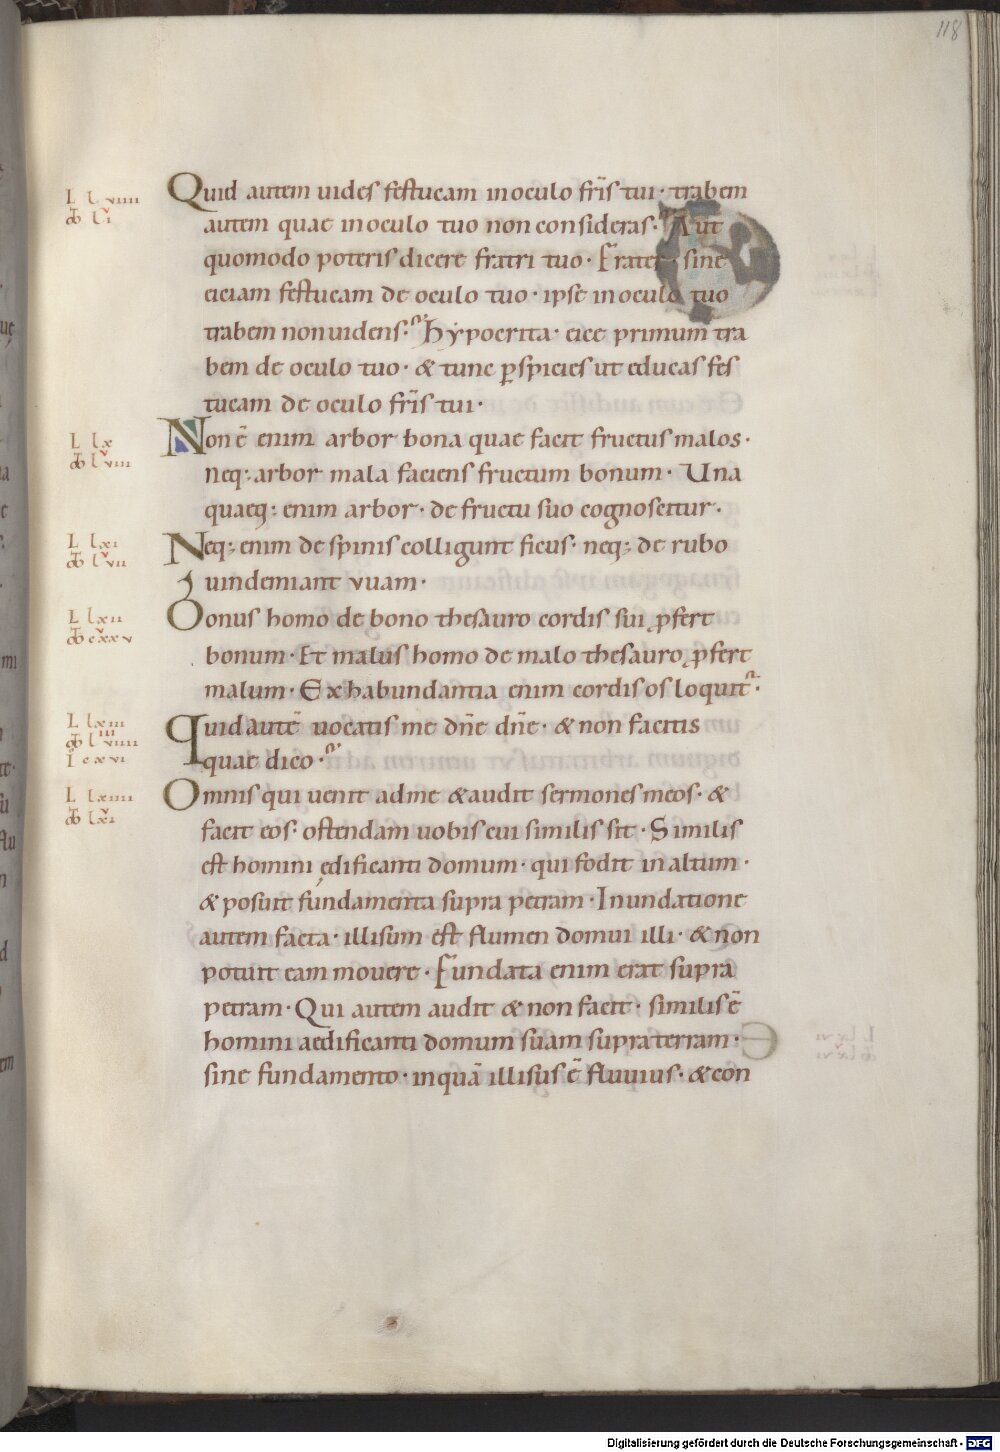 118
L lviiii
ꝏ lvi
Quid autem uides festucam in oculo fr̄is tui · trabem
autem quae in oculo tuo non consideras · Aut
quomodo poteris dicere fratri tuo · Frater · sine
eiciam festucam de oculo tuo · ipse in oculo tuo
trabem non uidens · hypocrita · eice primum tra
bem de oculo tuo · & tunc ꝑspicies ut educas fes
tucam de oculo fr̄is tui ·
L lx
ꝏ lviii
Non ē enim arbor bona quae facit fructus malos ·
neq; arbor mala faciens fructum bonum · Una
quaeq; enim arbor · de fructu suo cognoscitur ·
L lxi
ꝏ lvii
Neq; enim de spinis colligunt ficus · neq; de rubo
uindemiant vuam ·
L lxii
ꝏ cxxv
Bonus homo de bono thesauro cordis sui ꝓfert
bonum · Et malus homo de malo thesauro ꝓfert
malum · Ex habundantia enim cordis os loquit᷑ ·
L lxiii
ꝏ lviiii
I cxvi
Quid autē uocatis me dn̄e dn̄e · & non facitis
quae dico ·
L lxiiii
ꝏ lxi
Omnis qui uenit ad me & audit sermones meos · &
facit eos · ostendam uobis cui similis sit · Similis
est homini ędificanti domum · qui fodit in altum ·
& posuit fundamenta supra petram · Inundatione
autem facta · illisum est flumen domui illi · & non
potuit eam mouere · Fundata enim erat supra
petram · Qui autem audit & non facit · similis ē
homini aedificanti domum suam supra terram ·
sine fundamento · in quā illisus ē fluuius · & con
Digitalisierung gefördert durch die Deutsche Forschungsgemeinschaft - DFG